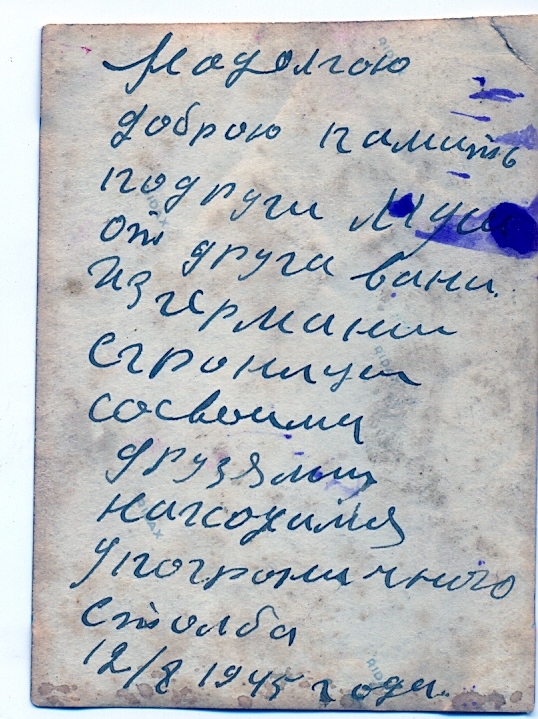 Надолгою
доброю память
подруги Муси
от друга вани.
Из германии
сгроницы
сосвоими
друзями
находимся
упограничного
столба
12/8 1945 года.